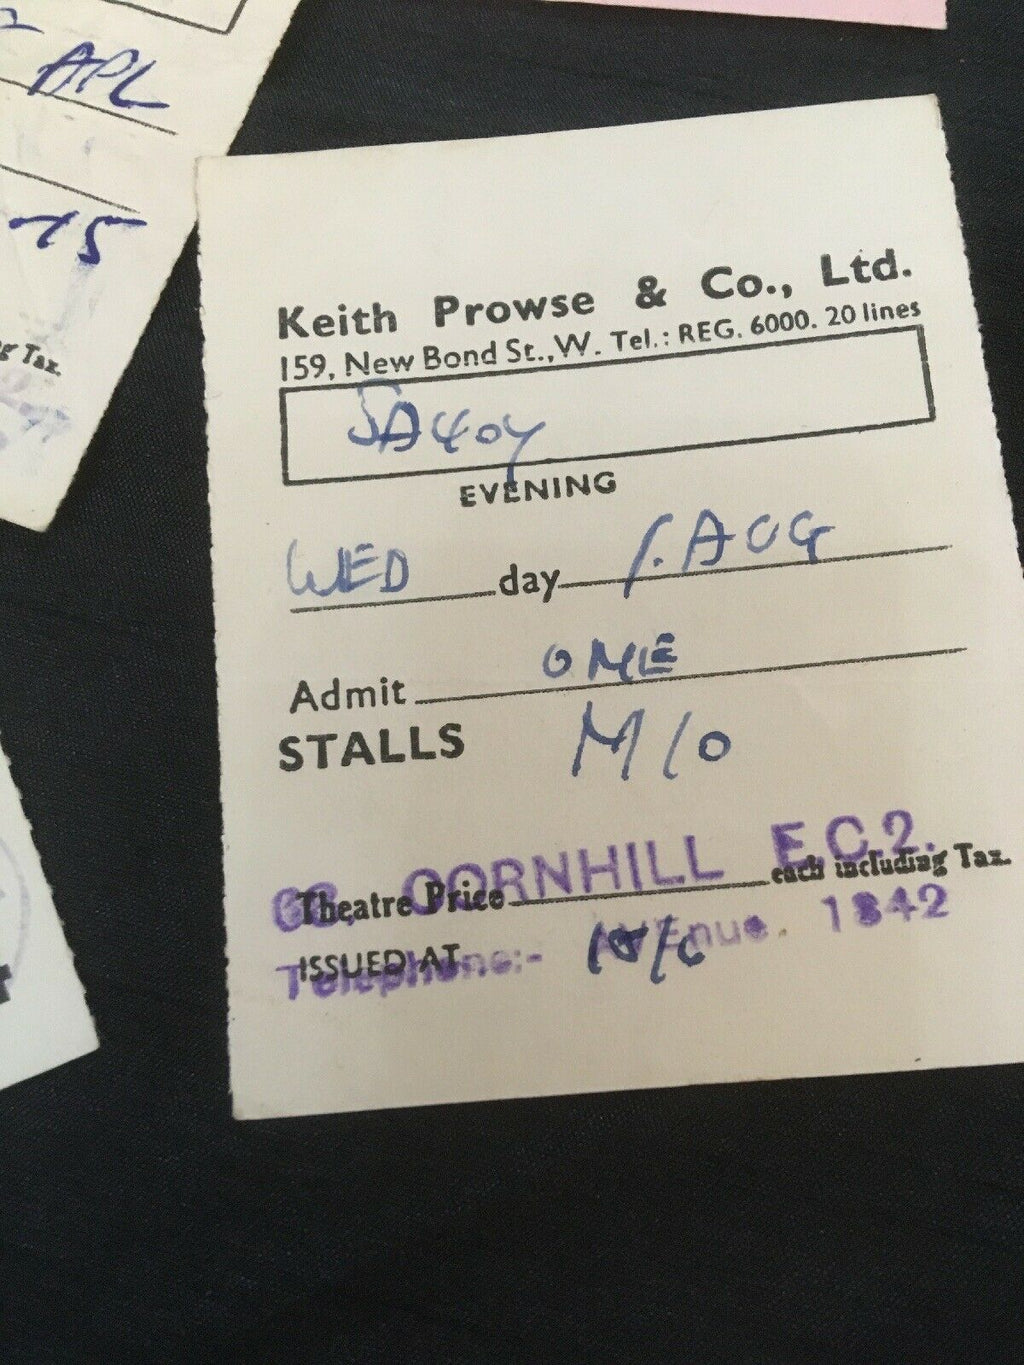 APL
15
g Tax.
Keith Prowse & Co., Ltd.
159, New Bond St., W. Tel.: REG. 6000. 20 lines
SAVOY
EVENING
WED day 1. AUG
Admit ONE
STALLS M10
CORNHILL E.C.2.
Theatre Price each including Tax.
Telephone:- AVEnue. 1842
ISSUED AT